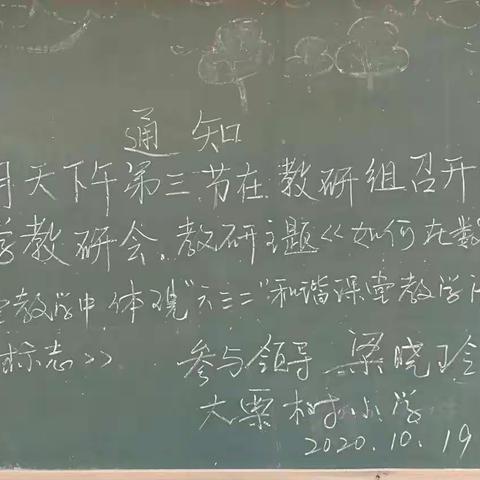 通知
明天下午第三节在教研组召开
学教研会。教研主题《如何在数
教学中体现"六三三"和谐课堂教学
标志》
参与领导 梁晓玲
大栗树小学
2020.10.19